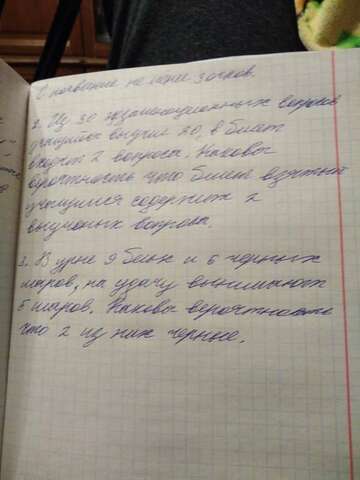 О появление не менее 3 очков.
2. Из 30 экзаменационных вопросов
учащийся выучил 20, в билет
входит 2 вопроса. Каковы
верочтность что билет взятый
учащимся содержит 2
выученых вопроса.
3. В урне 9 белых и 6 черных
шаров, на удачу вынимают
5 шаров. Каковы верочтность
что 2 из них черные.